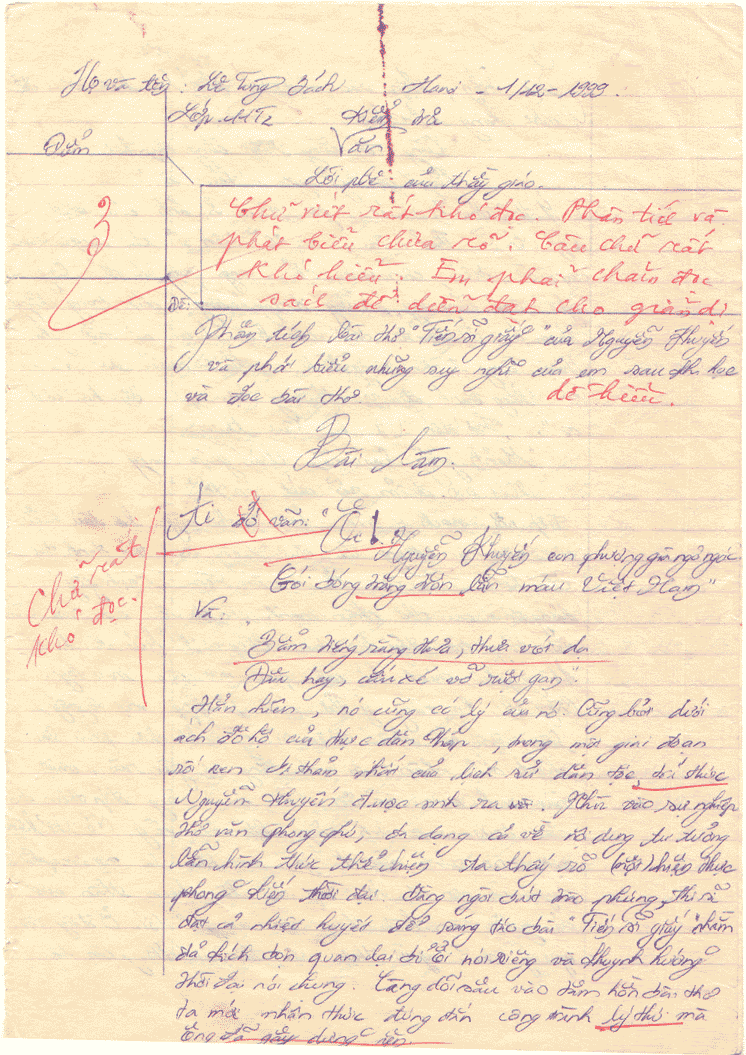 Họ và tên: Lê Tùng Bách Hanoi - 1/12 - 1999.
Lớp MT2 Kiểm tra
Điểm Văn
Lời phê của thầy giáo.
3
Chữ viết rất khó đọc. Phân tích và
phát biểu chưa rõ. Câu chữ rất
khó hiểu. Em phải chăm đọc
sách để diễn đạt cho giản dị
dễ hiểu.
Đề:
Phân tích bài thơ "Tiến sĩ giấy" của Nguyễn Khuyến
và phát biểu những suy nghĩ của em sau khi học
và đọc bài thơ.
Bài Làm.
Chữ rất
khó đọc.
văn: "
Nguyễn Khuyến con phượng già ngô
Gói lẫn máu Việt Nam"
Và:
Bẩm tiếng rằng thưa, thưa với dạ
Đâu hay, cấu xé vỡ ruột gan".
Hẳn nhiên, nó cũng có lý của nó. Cũng bởi dưới
ách đô hộ của thực dân Pháp, trong một giai đoạn
rối ren thảm nhất của lịch sử dân tộc, trí thức
Nguyễn Khuyến được sinh ra. Nhìn vào sự nghiệp
thơ văn phong phú, đa dạng cả về nội dung tư tưởng
lẫn hình thức thể hiện ta thấy rõ hiện thực
phong kiến thời đại. Bằng ngòi bút trào phúng, thi sĩ
đặt cả nhiệt huyết để sáng tác bài "Tiến sĩ giấy" nhằm
đả kích bọn quan lại nói riêng và khuynh hướng
thời đại nói chung. Càng dõi sâu vào tâm hồn bài thơ
ta mới nhận thức đúng đắn công trình lý thú mà
ông đã xây dựng nên.